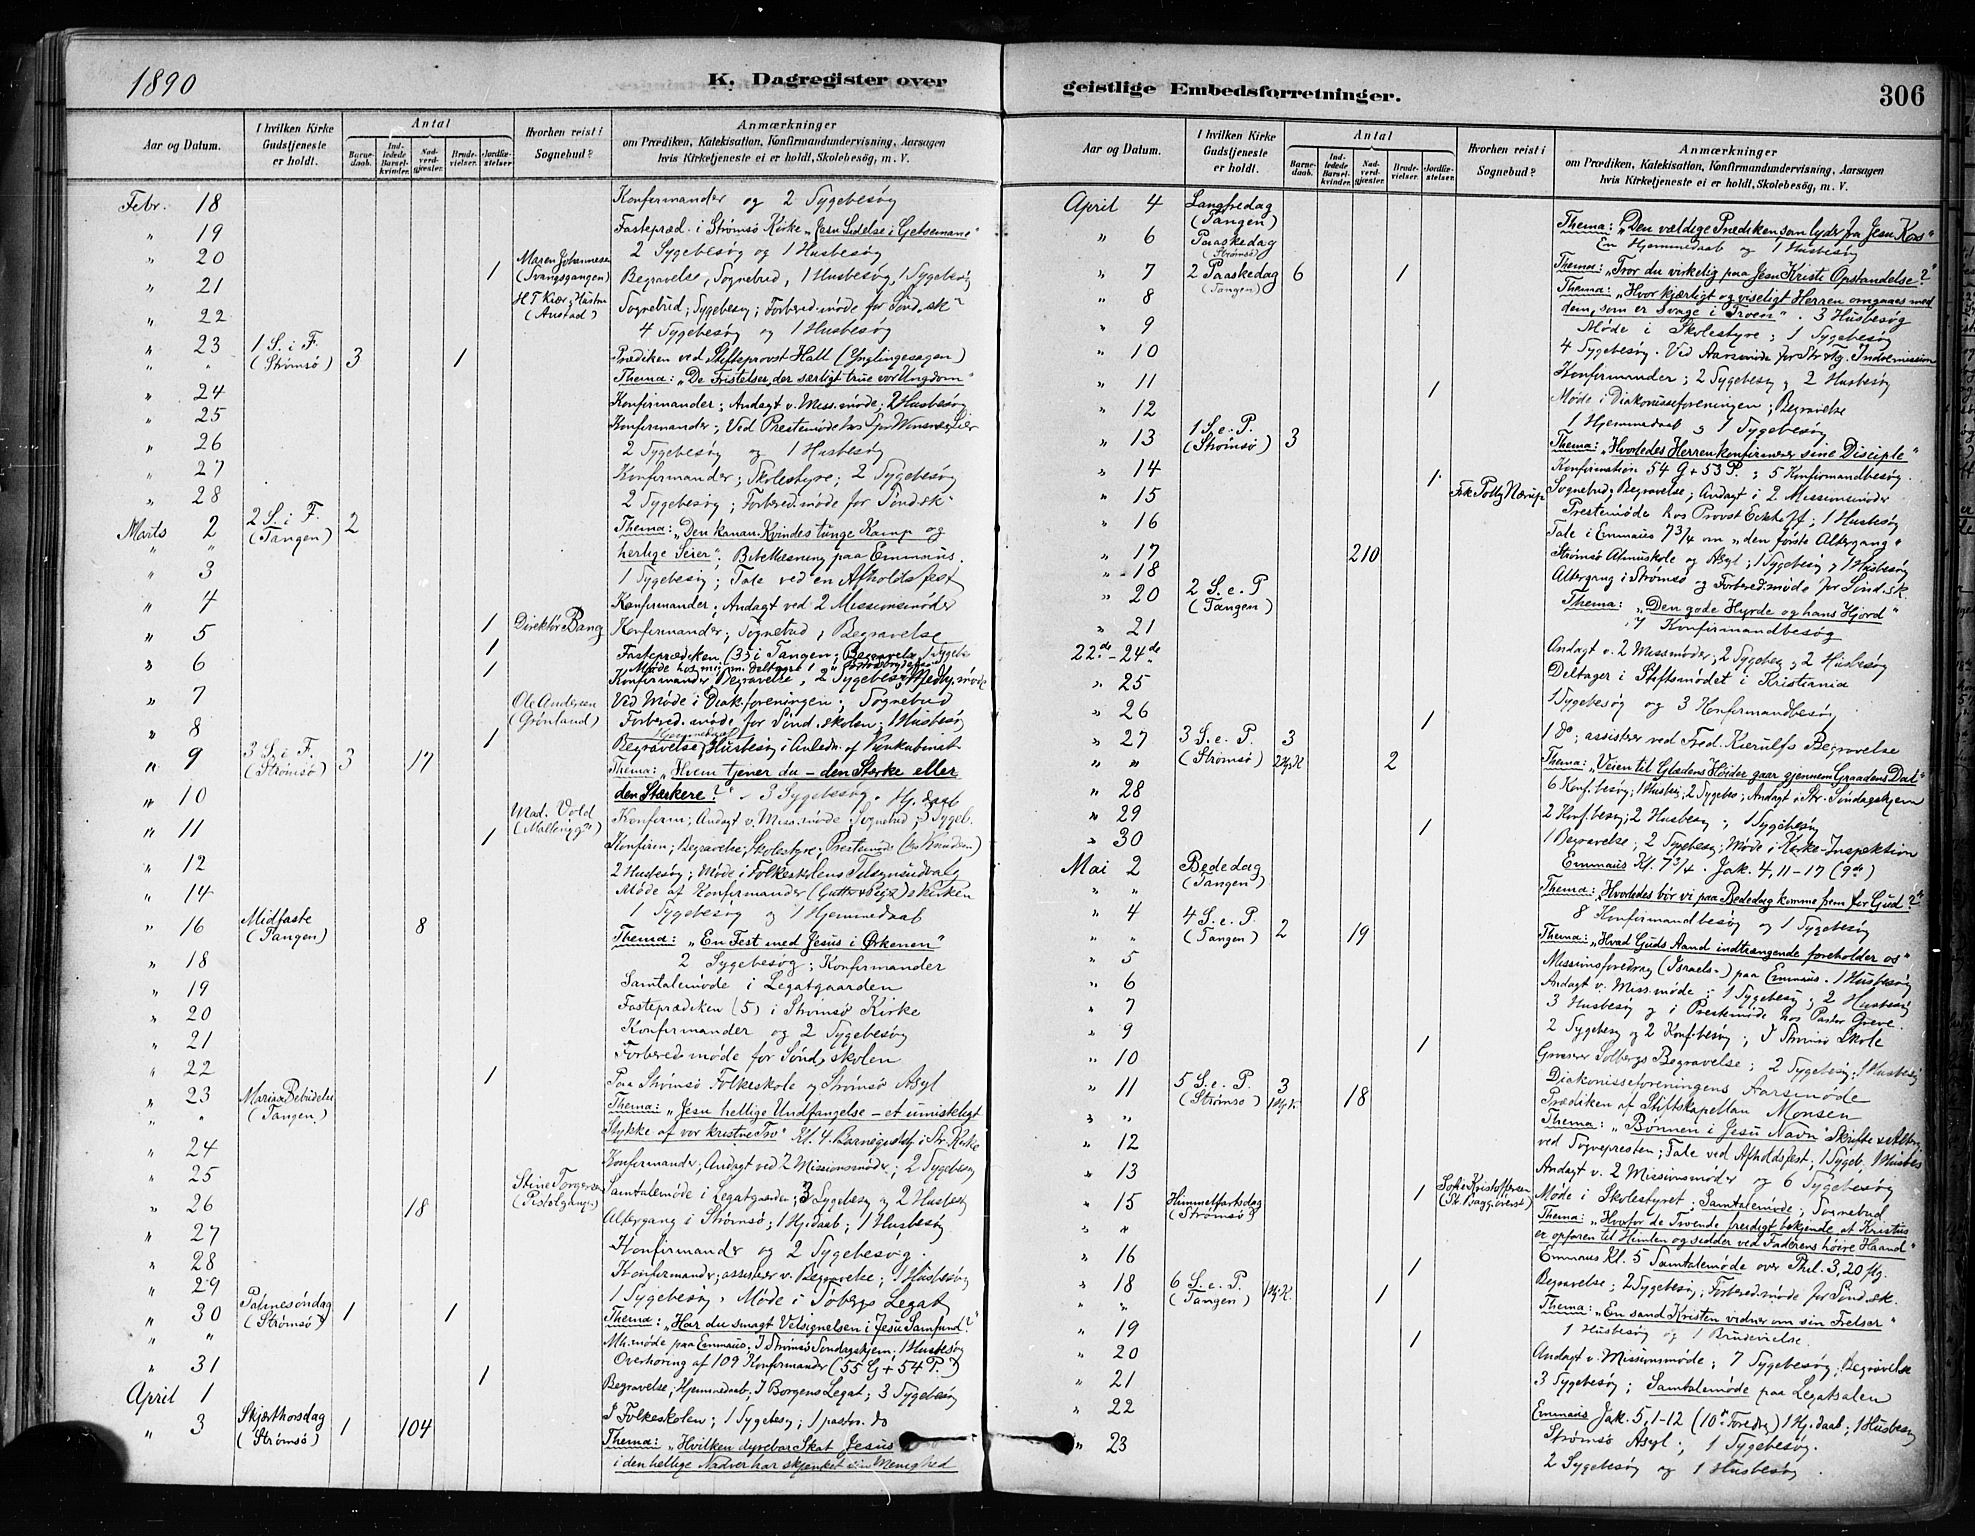 1890
K. Dagregister over
Aar og Datum.
I hvilken Kirke Gudstjeneste er holdt.
Antal
Barnedaab.
Indledede Barselkvinder.
Nadverdgjester.
Brudevielser.
Jordfæstelser
Hvorhen reist i Sognebud?
Anmærkninger
om Prædiken, Katekisation, Konfirmandundervisning, Aarsagen
hvis Kirketjeneste ei er holdt, Skolebesøg, m. V.
Febr. 18 Konfirmander og 2 Sygebesøg
" 19 Fastepræd. i Strømsø Kirke "Jesu Lidelse i Getsemane"
" 20 2 Sygebesøg og 1 Husbesøg
" 21 Maren Johannesen (Svangsgangen) 1 Begravelse, Sognebud, 1 Husbesøg, 1 Sygebesøg
" 22 (Austad) Sognebud; Sygebesøg; Forbered. møde for Sønd. sk.
4 Sygebesøg og 1 Husbesøg
" 23 1 S. i F. (Strømsø) 3 1 Prædiken ved Stiftsprovst Hall (Ynglingesagen)
" " Thema: "De Fristelser, der særligt true vor Ungdom"
" 24 Konfirmander; Andagt v. Miss. møde; 2 Husbesøg
" 25 Konfirmander; Ved Prestemøde hos Lier
" 26 2 Sygebesøg og 1 Husbesøg
" 27 Konfirmander; Skolestyre; 2 Sygebesøg
" 28 2 Sygebesøg; Forbered. møde for Sønd. sk.
Marts 2 2 S. i F. (Tangen) 2 Thema: "Den kanan. Kvindes tunge Kamp og
" " herlige Seier". Bibellæsning paa Emmaus.
" 3 1 Sygebesøg; Tale ved en Afholdsfest
" 4 Konfirmander. Andagt ved 2 Missionsmøder
" 5 1 Direktør Bang Konfirmander; Sognebud; Begravelse
" 6 1 Fasteprædiken (3) i Tangen; Begravelse; Sygebes.
1 Konfirmander, Begravelse, 2 Sygebesøg
" 7 Ole Andersen (Grønland) Ved Møde i Diak. foreningen; Sognebud
" 8 Forbered. møde for Sønd. skolen; 1 Husbesøg
" 9 3 S. i F. (Strømsø) 3 17 1 Begravelse, Husbesøg i Anledn. af
Thema: "Hvem tjener du - den Sterke eller
" 10 den Stærkere?" - 3 Sygebesøg. Hj. daab
" 11 Mad. Vold Konfirm.; Andagt v. Miss. møde. Sognebud; 3 Sygeb.
1 Konfirm.; Begravelse; Skolestyre; Prestemøde (hos Knudsen)
" 12 2 Husbesøg; Møde i Folkeskolens Tilsynsudvalg
" 14 Møde af Konfirmander (Gutter & Piger) i Kirken
1 Sygebesøg og 1 Hjemmedaab
" 16 Midfaste (Tangen) 8 Thema: "En Fest med Jesus i Ørkenen"
" 18 2 Sygebesøg; Konfirmander
" 19 Samtalemøde i Legatgaarden
" 20 Fasteprædiken (5) i Strømsø Kirke
" 21 Konfirmander og 2 Sygebesøg
" 22 Forbered. møde for Sønd. skolen
" 23 Mariæ Bebudelse (Tangen) 1 Paa Strømsø Folkeskole og Strømsø Asyl
" " Thema: "Jesu hellige Undfangelse - et umisteligt
Stykke af vor kristne Tro" Kl. 4 Barnegudst. i Str. Kirke
" 24 Konfirmander, Andagt ved 2 Missionsmøder; 2 Sygebesøg
" 25 Stine Torgersen Samtalemøde i Legatgaarden; 3 Sygebesøg og 2 Husbesøg
" 26 18 Altergang i Strømsø; 1 Hj. daab; 1 Husbesøg
" 27 Konfirmander og 2 Sygebesøg.
" 28 Konfirmander; assisterer v. Begravelse; 1 Husbesøg
" 29 1 Sygebesøg. Møde i Søbergs Legat
" 30 Palmesøndag (Strømsø) 1 1 Thema: "Har du smagt Velsignelsen i Jesu Samfund?"
" " møde paa Emmaus. I Strømsø Søndagshjem. 1 Husbesøg
" 31 Overhøring af 109 Konfirmander (55 G + 54 P.)
1 Begravelse, Hjemmedaab, I Borgens Legat; 3 Sygebesøg
April 1 I Folkeskolen; 1 Sygebesøg; 1 do
" 3 Skjærthorsdag (Strømsø) 1 104 Thema: "Hvilken dyrebar Skat Jesus
i den hellige Nadver har skjenket sin Menighed
geistlige Embedsforretninger.
306
Aar og Datum.
I hvilken Kirke Gudstjeneste er holdt.
Antal
Barnedaab.
Indledede Barselkvinder.
Nadverdgjester.
Brudevielser.
Jordfæstelser.
Hvorhen reist i Sognebud?
Anmærkninger
om Prædiken, Katekisation, Konfirmandundervisning, Aarsagen
hvis Kirketjeneste ei er holdt, Skolebesøg, m. V.
April 4 Langfredag (Tangen) Thema: "Den vældige Prædiken som lyder fra Jesu Kors"
" 6 Paaskedag (Strømsø) En Hjemmedaab og 1 Husbesøg
" 7 2 Paaskedag (Tangen) 6 1 Thema: "Tror du virkelig paa Jesu Kristi Opstandelse?"
" 8 Thema: "Hvor kjærligt og viseligt Herren omgaaes med
dem, som er Svage i Troen". 3 Husbesøg
" 9 Møde i Skolestyre; 1 Sygebesøg
" 10 4 Sygebesøg. Ved Aarsmøde for Indremission
" 11 Konfirmander; 2 Sygebesøg; 2 Husbesøg
" 12 1 Møde i Diakonisseforeningen; Begravelse
1 Hjemmedaab og 1 Sygebesøg
" 13 1 S. e. P. (Strømsø) 3 Thema: "Hvorledes Herren konfirmerer sine Disciple"
" 14 Konfirmation 54 G + 53 P.; 5 Konfirmandbesøg.
" 15 1 Frk Polly Nærup Sognebud; Begravelse; Andagt i 2 Missionsmøder
" 16 Prestemøde hos Provst Eckhoff; 1 Husbesøg
Tale i Emmaus 7 3/4 om "den første Altergang"
" 17 210 Strømsø Almuskole og Asyl; 1 Sygebesøg og 1 Husbesøg
" 18 Altergang i Strømsø og Forbered. møde for Sønd. sk
" 20 2 S. e. P (Tangen) Thema: "Den gode Hyrde og hans Hjord"
" 21 7 Konfirmandbesøg
22de - 24de Andagt v. 2 Miss. møder; 2 Sygebesøg; 2 Husbesøg
" 25 Deltager i Stiftsmødet i Kristiania
" 26 1 Sygebesøg og 3 Konfirmandbesøg
1 1 do; assisterer ved Fred. Kierulfs Begravelse
" 27 3 S. e. P. (Strømsø) 3 Thema: "Veien til Glædens Høider gaar gjennem Graadens Dal"
" " 2 Hj. K 2
" 28 6 Konf. besøg; 1 Husbesøg; 2 Sygebes.; Andagt i Str. Søndagshjem
" 29 2 Konf. besøg; 2 Husbesøg; 1 Sygebesøg
" 30 1 1 Begravelse; 2 Sygebesøg; Møde i Kirke-Inspektion
Emmaus Kl. 7 3/4. Jak. 4, 11-17 (9de)
Mai 2 Bededag (Tangen) Thema: "Hvorledes bør vi paa Bededag komme frem for Gud?"
" " 8 Konfirmandbesøg og 1 Sygebesøg
" 4 4 S. e. P. (Tangen) 2 19 Thema: "Hvad Guds Aand indtrængende foreholder os"
" 5 Missionsforedrag (Israels-) paa Emmaus. 1 Husbesøg
" 6 Andagt v. Miss. møde; 1 Sygebesøg; 2 Husbesøg
" 7 3 Husbesøg og i Prestemøde hos Pastor Greve.
" 9 2 Sygebesøg og 2 Konf. besøg; I Strømsø Skole
" 10 1 Solbergs Begravelse; 2 Sygebesøg; 1 Husbesøg
Diakonisseforeningens Aarsmøde
" 11 5 S. e. P. (Strømsø) 3 1 Hj. K. 18 Prædiken af Stiftskapellan Monsen
" " Thema: "Bønnen i Jesu Navn" Skrifte & Alterg.
" 12 ved Sognepresten; Tale ved Afholdsfest; 1 Sygeb., 1 Husbes.
" 13 Andagt v. 2 Missionsmøder og 6 Sygebesøg
" 15 Himmelfartsdag (Strømsø) 1 Sofie Kristoffersen Møde i Skolestyret; Samtalemøde; Sognebud
" " Thema: "Hvorfor de Troende freidigt bekjende at Kristus
er opfaren til Himlen og sidder ved Faderens høire Haand"
" 16 1 Emmaus Kl. 5 Samtalemøde over Phil. 3, 20 flg.
" 18 6 S. e. P. (Tangen) 1 Hj. K. 1 Begravelse; 2 Sygebesøg; Forbered. møde for Sønd. sk.
" " Thema: "En sand Kristen vidner om sin Frelser"
" 19 1 Husbesøg og 1 Brudevielse.
" 20 1 Andagt v. Missionsmøde; 7 Sygebesøg; Begravelse
" 21 3 Sygebesøg; Samtalemøde paa Legatsalen
" 22 Emmaus Jak. 5, 1-12 (10de Foredrag) 1 Hj. daab, 1 Husbesøg
" 23 Strømsø Asyl; 1 Sygebesøg.
2 Sygebesøg og 1 Husbesøg.